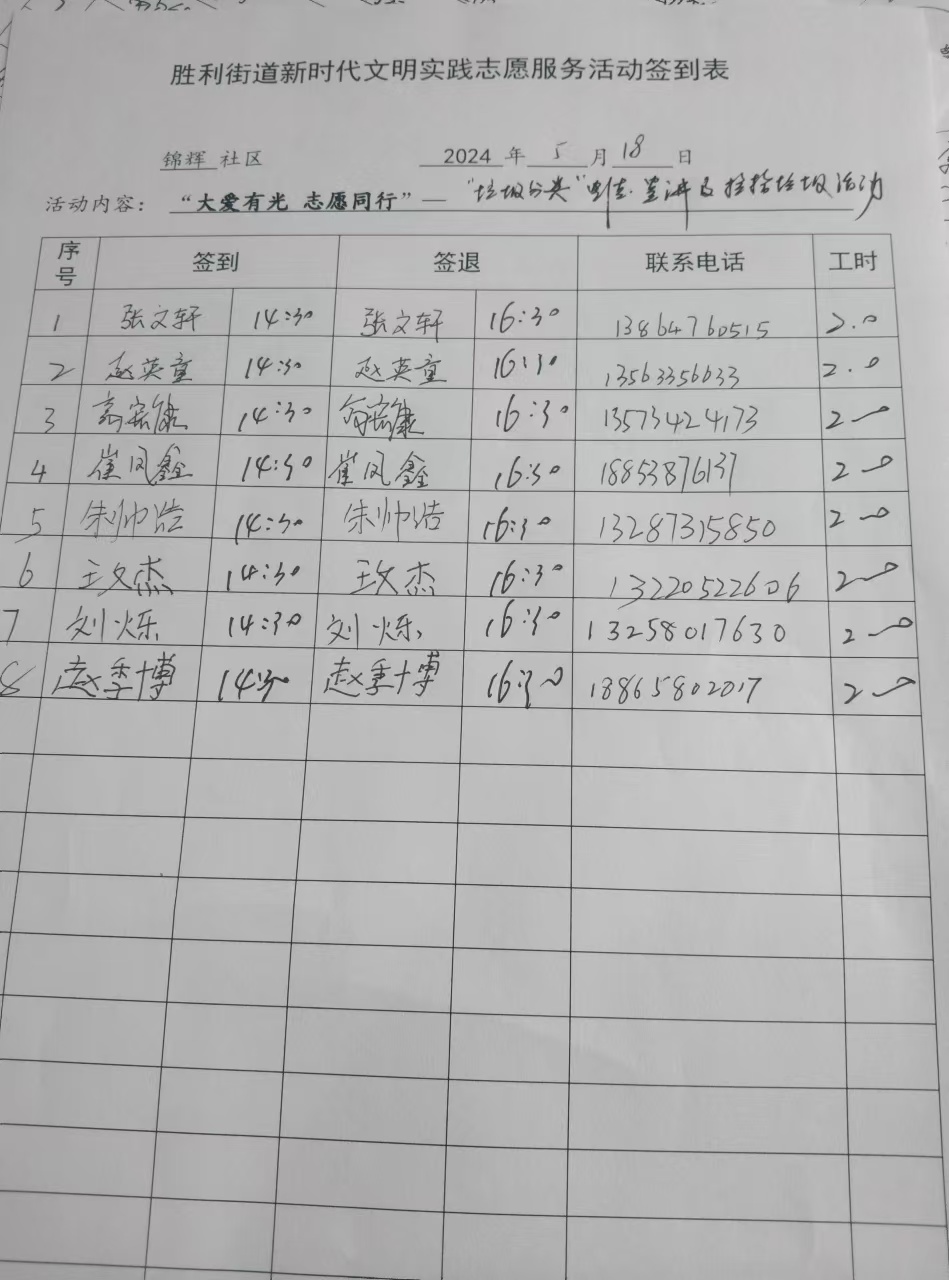 胜利街道新时代文明实践志愿服务活动签到表
锦辉 社区 2024 年 5 月 18 日
活动内容: “大爱有光 志愿同行”— “垃圾分类” 宣讲及捡拾垃圾活动
序号 签到 签退 联系电话 工时
1 张文轩 14:30 张文轩 16:30 13864760515 2.0
2 赵英童 14:30 赵英童 16:30 13563356633 2.0
3 14:30 16:30 13573424173 2.0
4 崔凤鑫 14:30 崔凤鑫 16:30 18853876137 2.0
5 朱帅浩 14:30 朱帅浩 16:30 13287315850 2.0
6 王文杰 14:30 王文杰 16:30 13220522606 2.0
7 刘烁 14:30 刘烁 16:30 13258017630 2.0
8 赵季博 14:30 赵季博 16:30 18865802017 2.0